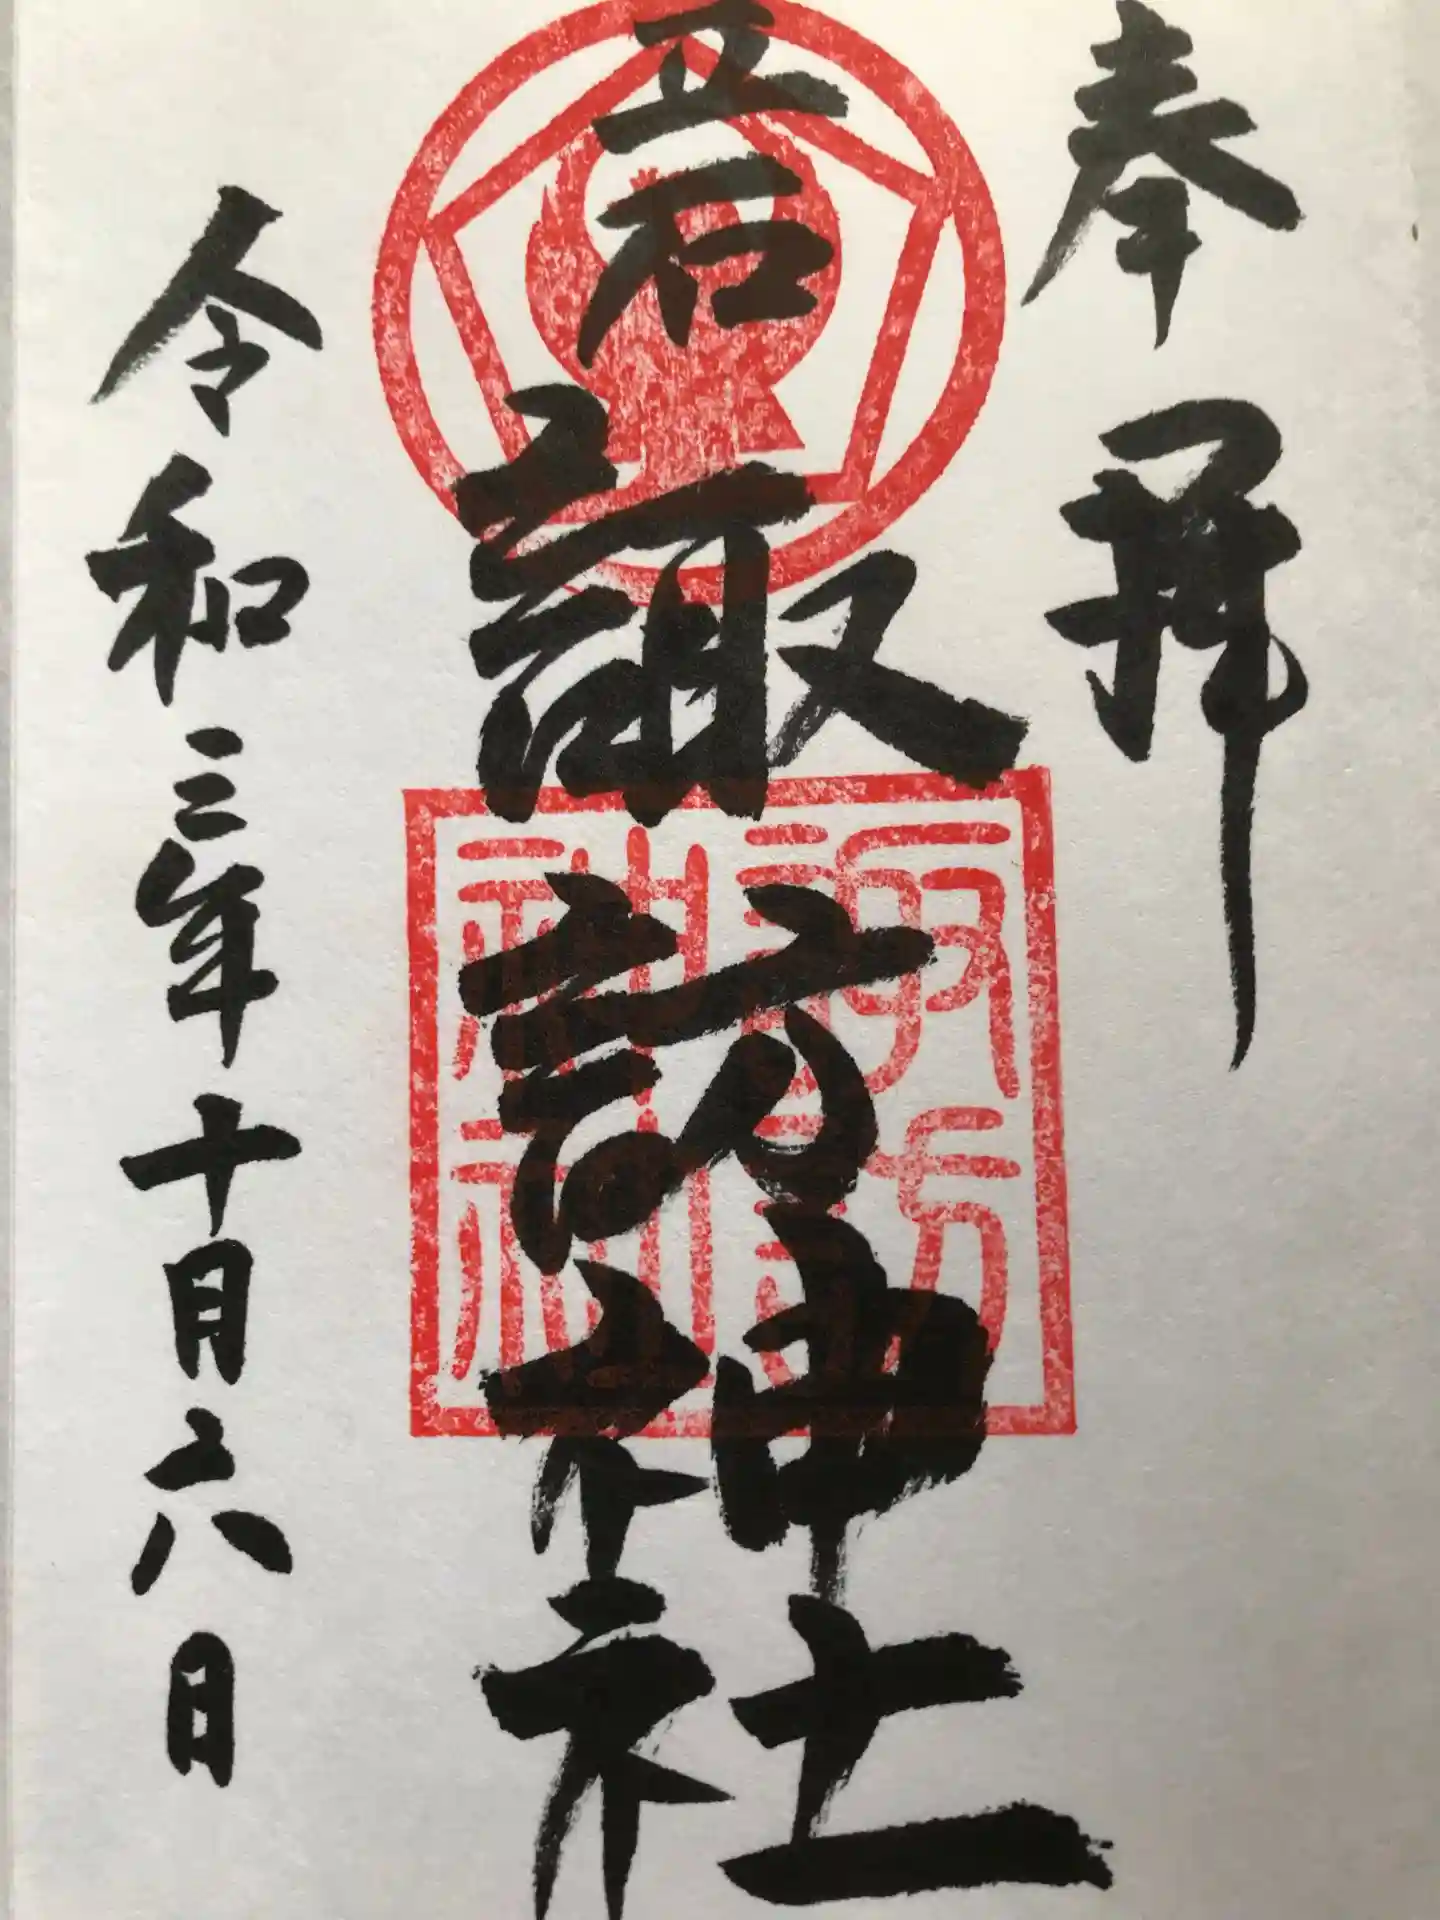 奉拝
立石
諏訪神社
諏訪
神社
令和三年十月六日